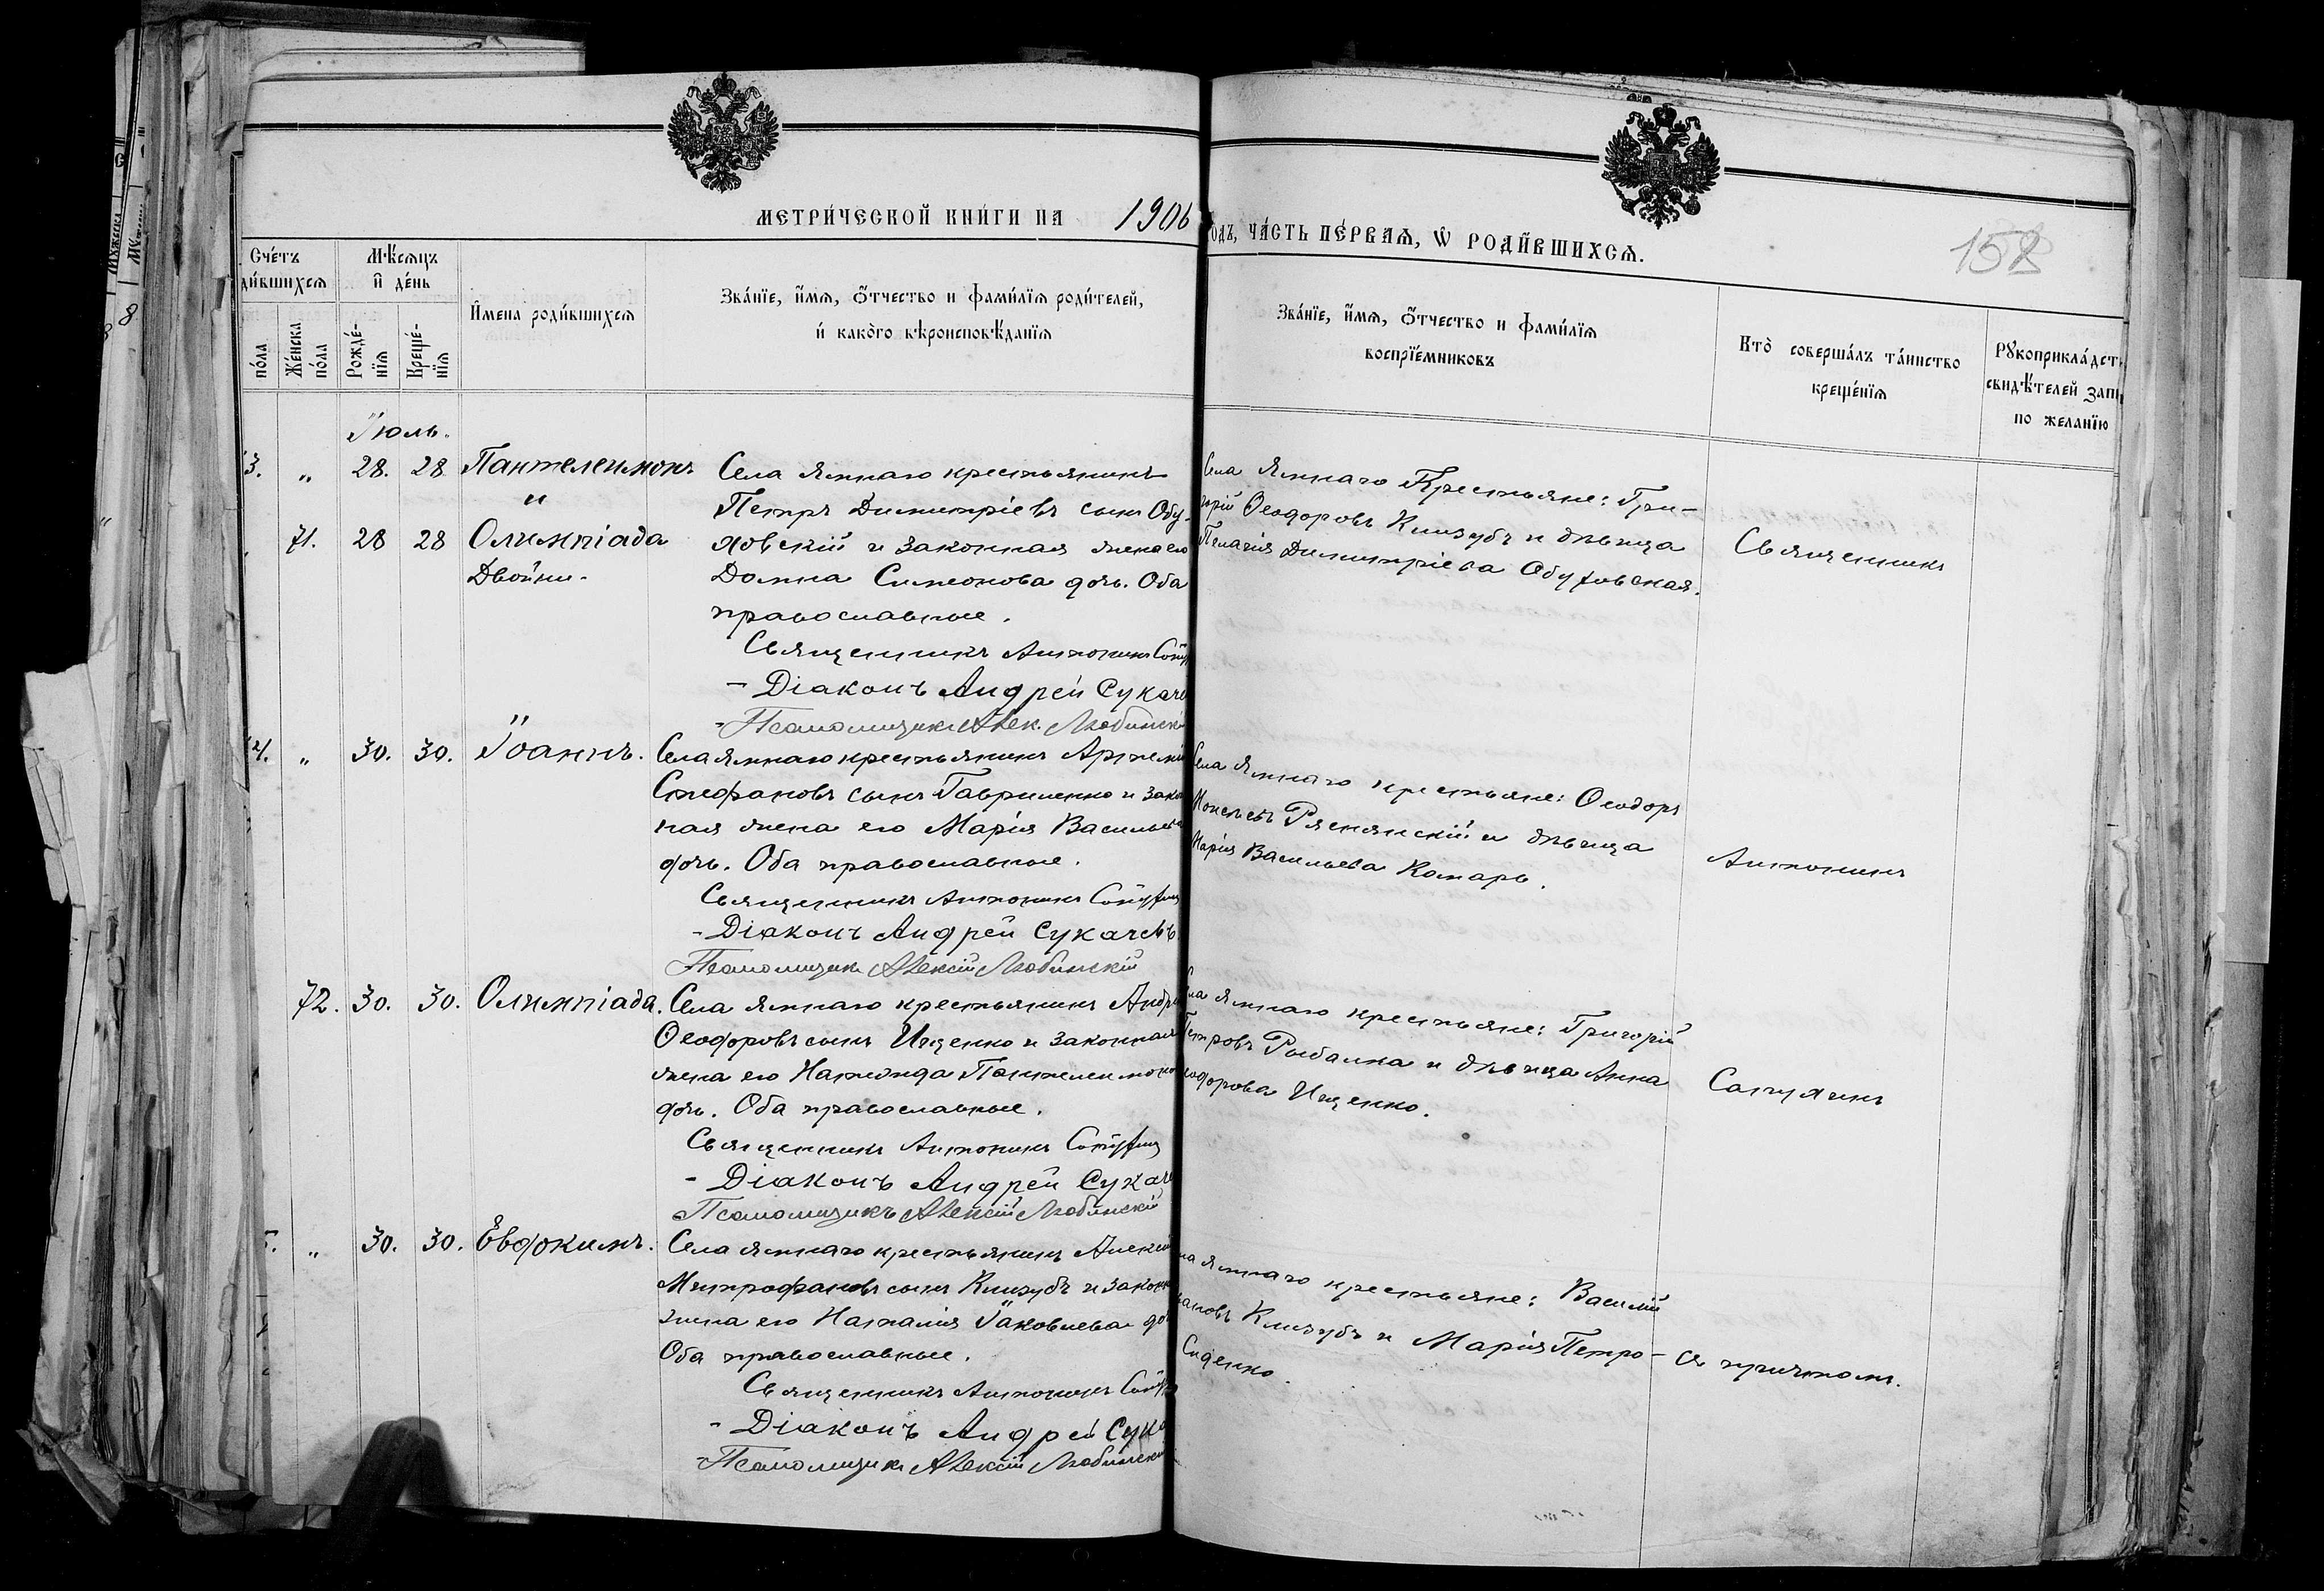 МЕТРИ́ЧЕСКОЙ КНИ́ГИ НА 1906
ОДЪ, ЧА́СТЬ ПЕ́РВАЯ, Ѡ҆ РОДИ́ВШИХСЯ.
152
Сче́тъ
ди́вшихся
Мѣ́сяцъ
и҆ де́нь
И҆мена роди́вшихся
Зва́нїе, и҆́мя, ѻ҆́тчество и фами́лїя роди́телей,
и҆ како́гѡ вѣроисповѣ́данїя
по́ла
Же́нска
по́ла
Рожде́-
нїя
Креще́-
нїя
Зва́нїе, и҆́мя, ѻ҆́тчество и фами́лїя
воспрїе́мниковъ
Кто̀ соверша́лъ та́инство
креще́нїя
Рꙋкоприкла́дст
свидѣ́телей запи
по жела́нїю
Іюль.
3. " 28. 28 Пантелеимонъ
и
71. 28 28 Олимпіада
Двойни.
Села Ямнаго крестьянинъ
Петръ Димитріевъ сынъ Обу-
ховскій и законная жена его
Домна Симеонова дочь. Оба
православные.
Священникъ Антонинъ
- Діаконъ Андрей Сукаче
- Псаломщикъ Алек. Любинскі
Села Ямнаго Крестьяне: Гри-
горій Ѳеодоровъ Клизубъ и дѣвица
Пелагія Димитріева Обуховская.
Священникъ
4. " 30. 30. Іоаннъ.
Села Ямнаго крестьянинъ Артемі
Стефановъ сынъ Гавриленко и закон
ная жена его Марія Васильева
дочь. Оба православные.
Священникъ Антонинъ
- Діаконъ Андрей Сукачевъ.
Псаломщикъ Алексій Любинскій
Села Ямнаго крестьяне: Ѳеодоръ
Моисеевъ Ряснянскій и дѣвица
Марія Васильева Комарь.
Антонинъ
72. 30. 30. Олимпіада.
Села Ямнаго крестьянинъ Андре
Ѳеодоровъ сынъ Ищенко и законная
жена его Пантелеимоно
дочь. Оба православные.
Священникъ Антонинъ
- Діаконъ Андрей Сукаче
Псаломщикъ Алексій Любинскій
ла Ямнаго крестьяне: Григорій
Петровъ Рыбалка и дѣвица Анна
еодорова Ищенко.
5. " 30. 30. Евдокимъ.
Села Ямнаго крестьянинъ Алексій
Митрофановъ сынъ Клизубъ и законн
жена его Наталія Іаковлева доч
Оба православные.
Священникъ Антонинъ
- Діаконъ Андрей Сука
- Псаломщикъ Алексій Любински
ла Ямнаго крестьяне: Василій
ановъ Клизубъ и Марія Петро-
Сиденко.
съ причтомъ.